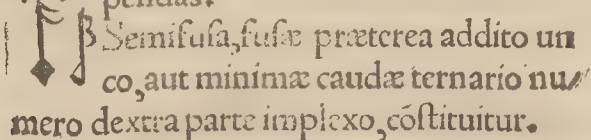 pendas.
Semifuſa, fuſæ præterea addito un
co, aut minimæ caudæ ternario nu⸗
mero dextra parte implexo, cōſtituitur.